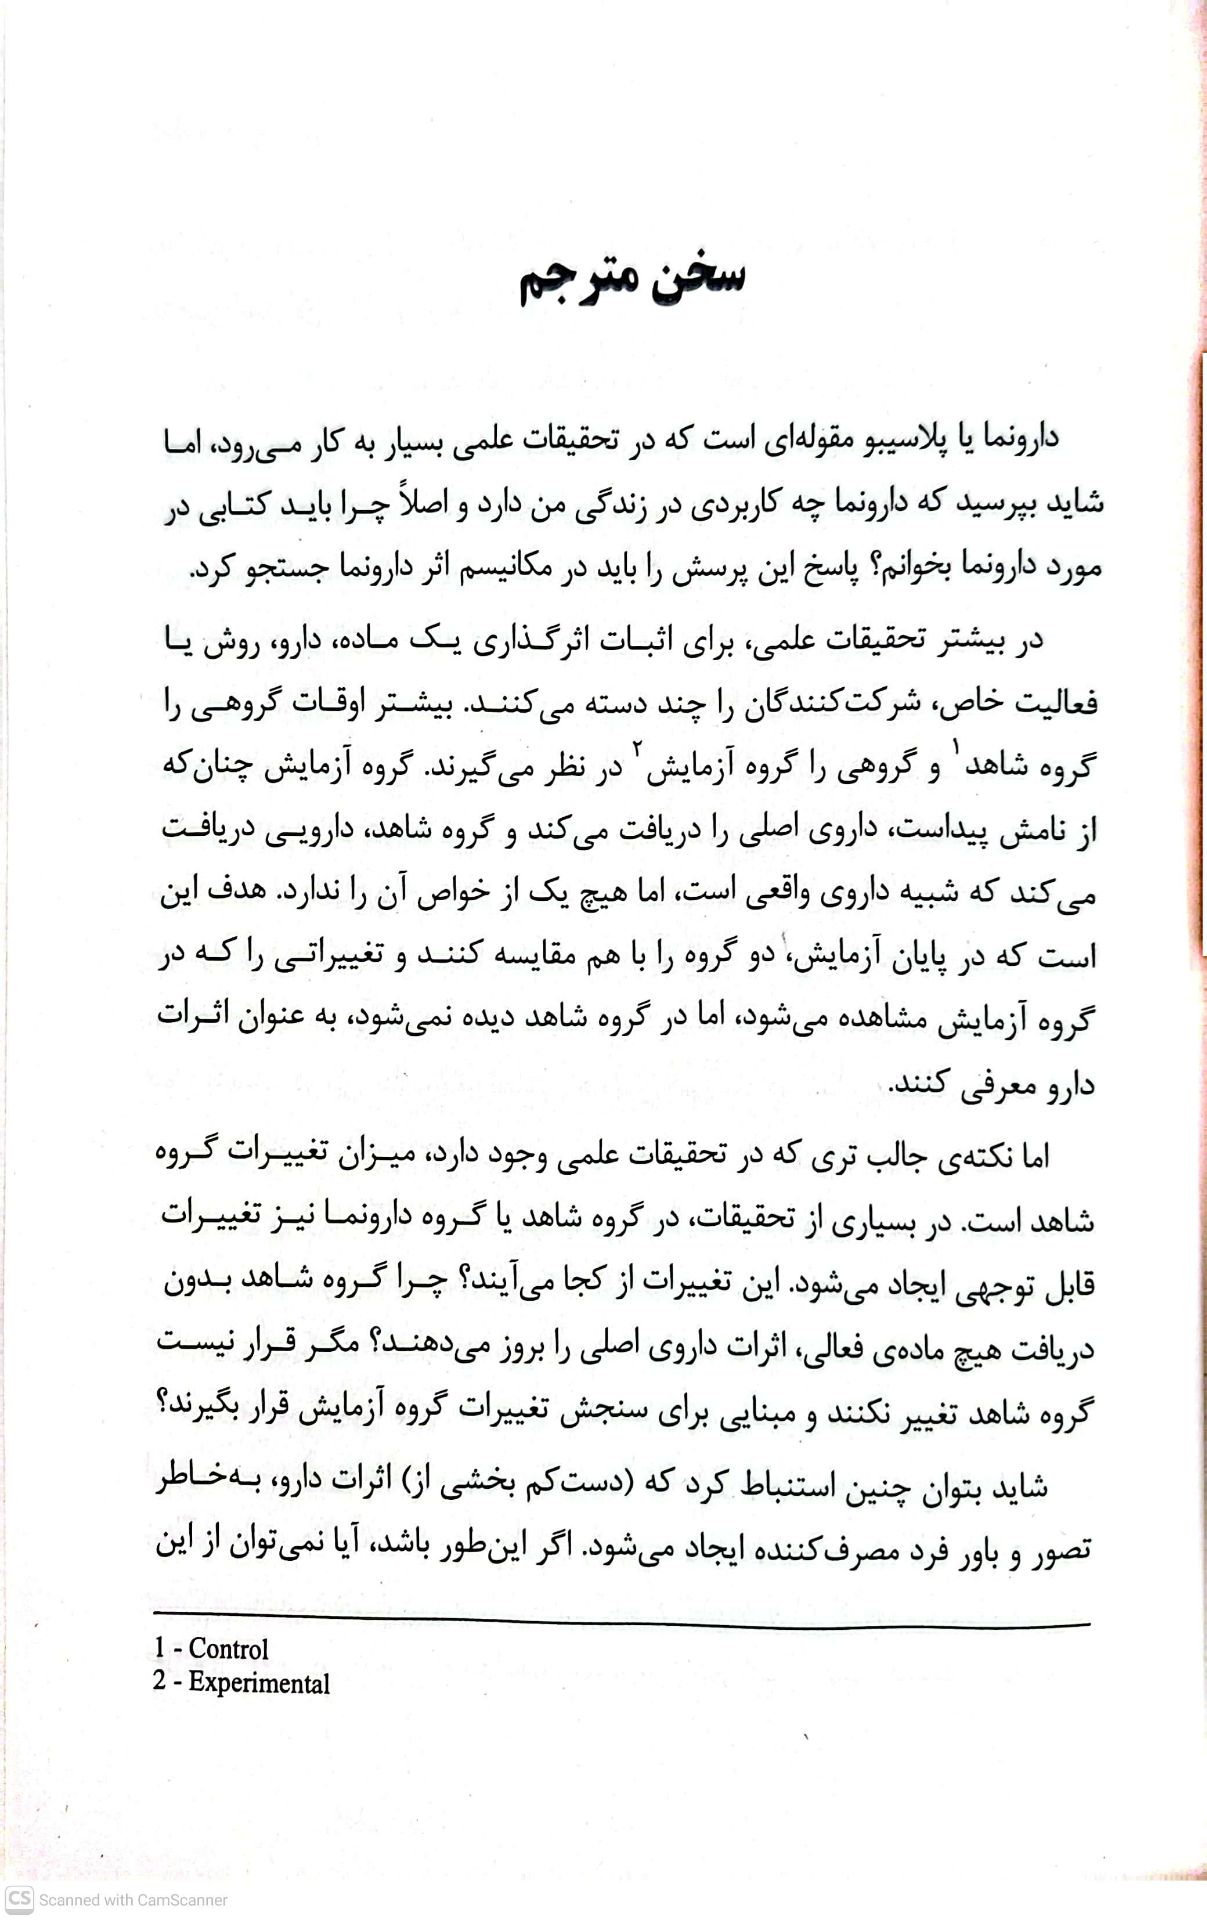 سخن مترجم
دارونما یا پلاسیبو مقوله‌ای است که در تحقیقات علمی بسیار به کار می‌رود، اما
شاید بپرسید که دارونما چه کاربردی در زندگی من دارد و اصلاً چرا باید کتابی در
مورد دارونما بخوانم؟ پاسخ این پرسش را باید در مکانیسم اثر دارونما جستجو کرد.
در بیشتر تحقیقات علمی، برای اثبات اثرگذاری یک ماده، دارو، روش یا
فعالیت خاص، شرکت‌کنندگان را چند دسته می‌کنند. بیشتر اوقات گروهی را
گروه شاهد۱ و گروهی را گروه آزمایش۲ در نظر می‌گیرند. گروه آزمایش چنان‌که
از نامش پیداست، داروی اصلی را دریافت می‌کند و گروه شاهد، دارویی دریافت
می‌کند که شبیه داروی واقعی است، اما هیچ یک از خواص آن را ندارد. هدف این
است که در پایان آزمایش، دو گروه را با هم مقایسه کنند و تغییراتی را که در
گروه آزمایش مشاهده می‌شود، اما در گروه شاهد دیده نمی‌شود، به عنوان اثرات
دارو معرفی کنند.
اما نکته‌ی جالب تری که در تحقیقات علمی وجود دارد، میزان تغییرات گروه
شاهد است. در بسیاری از تحقیقات، در گروه شاهد یا گروه دارونما نیز تغییرات
قابل توجهی ایجاد می‌شود. این تغییرات از کجا می‌آیند؟ چرا گروه شاهد بدون
دریافت هیچ ماده‌ی فعالی، اثرات داروی اصلی را بروز می‌دهند؟ مگر قرار نیست
گروه شاهد تغییر نکنند و مبنایی برای سنجش تغییرات گروه آزمایش قرار بگیرند؟
شاید بتوان چنین استنباط کرد که (دست‌کم بخشی از) اثرات دارو، به‌خاطر
تصور و باور فرد مصرف‌کننده ایجاد می‌شود. اگر این‌طور باشد، آیا نمی‌توان از این
1 - Control
2 - Experimental
CS Scanned with CamScanner